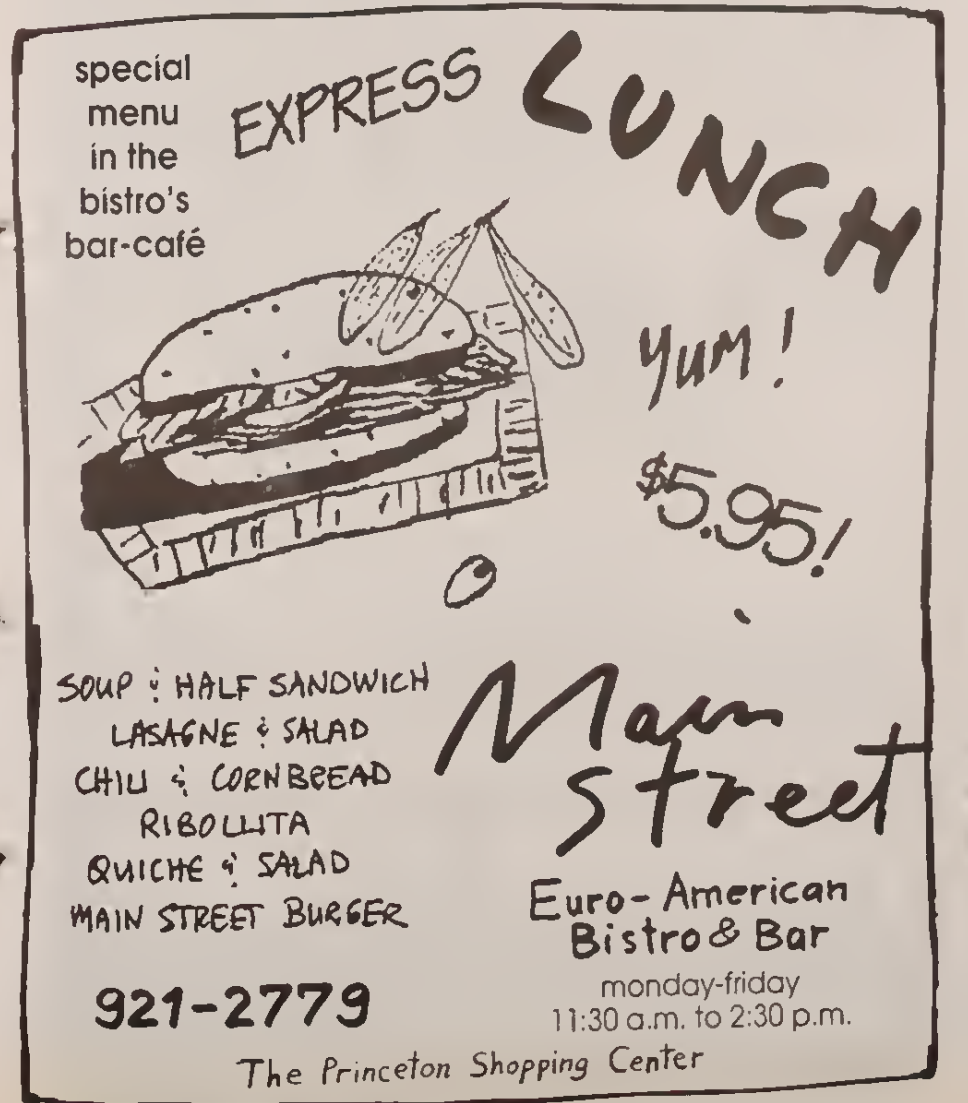 special
menu
in the
bistro's
bar-café
EXPRESS LUNCH
YUM!
$5.95!
SOUP & HALF SANDWICH
LASAGNE & SALAD
CHILI & CORNBREAD
RIBOLLITA
QUICHE & SALAD
MAIN STREET BURGER
921-2779
Main
Street
Euro-American
Bistro & Bar
monday-friday
11:30 a.m. to 2:30 p.m.
The Princeton Shopping Center